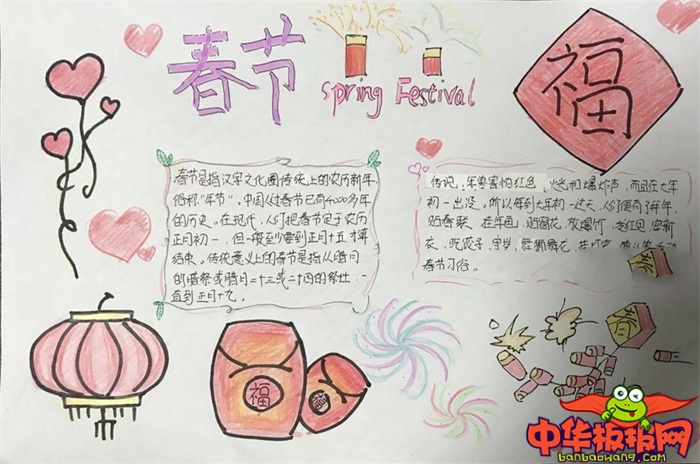 春节
Spring Festival
福
春节是指汉字文化圈传统上的农历新年,
俗称"年节",中国人过春节已有4000多年
的历史。在现代,人们把春节定于农历
正月初一,但一般至少要到正月十五才算
结束。传统意义上的春节是指从腊月
的腊祭或腊月二十三或二十四的祭灶,一
直到正月十九。
传说,年兽害怕红色、火光和爆炸声,而且在大年
初一出没。所以每到大年初一这天,人们便有了拜年、
贴春联、在年画、贴窗花、放爆竹、发红包、穿新
衣、吃饺子、守岁、舞狮舞龙、
春节习俗。
福
春
中华板报网
banbaowang.com